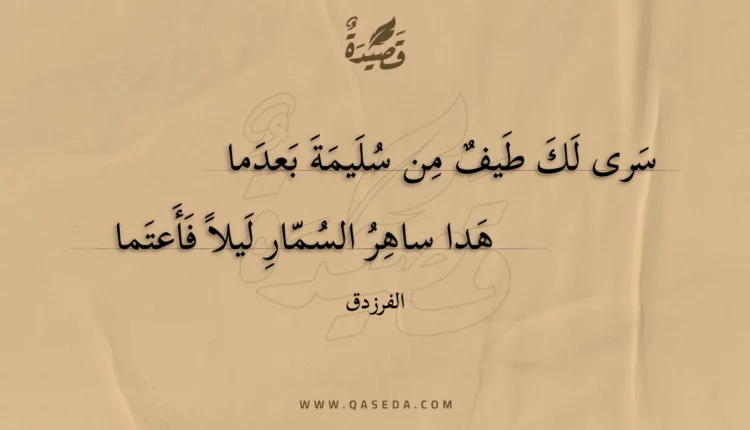 قَصِيدَةٌ
سَرى لَكَ طَيفٌ مِن سُلَيمَةَ بَعدَما
هَدا ساهِرُ السُمّارِ لَيلاً فَأَعتَما
الفرزدق
WWW.QASEDA.COM